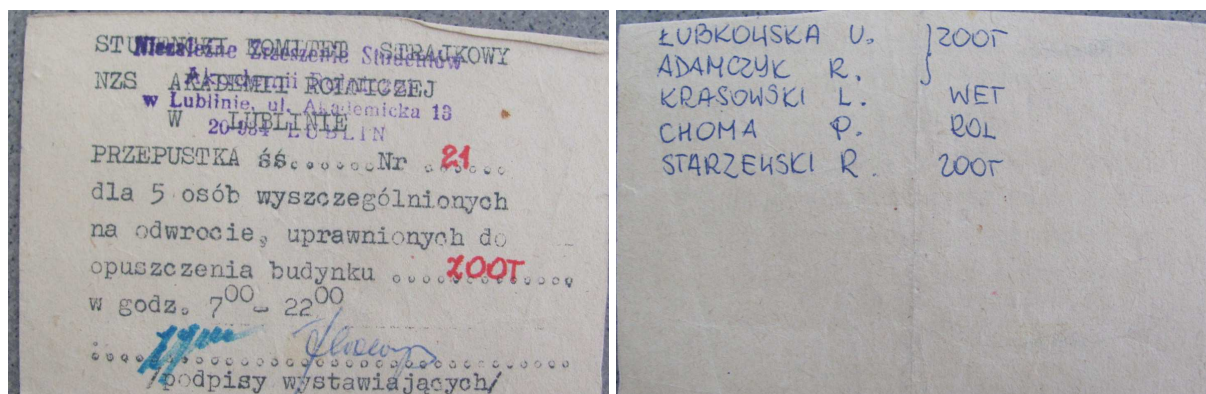 STUDENCKI KOMITET STRAJKOWY
Niezależne Zrzeszenie Studentów
NZS AKADEMII ROLNICZEJ
Akademii Rolniczej
w Lublinie, ul. Akademicka 13
W LUBLINIE
20-934 LUBLIN
PRZEPUSTKA śś......Nr .21.....
dla 5 osób wyszczególnionych
na odwrocie, uprawnionych do
opuszczenia budynku ....ZOOT.....
w godz. 7⁰⁰- 22⁰⁰
/podpisy wystawiających/
ŁUBKOWSKA U. } ZOOT
ADAMCZYK R.
KRASOWSKI L. WET
CHOMA P. ROL
STARZEWSKI R. ZOOT